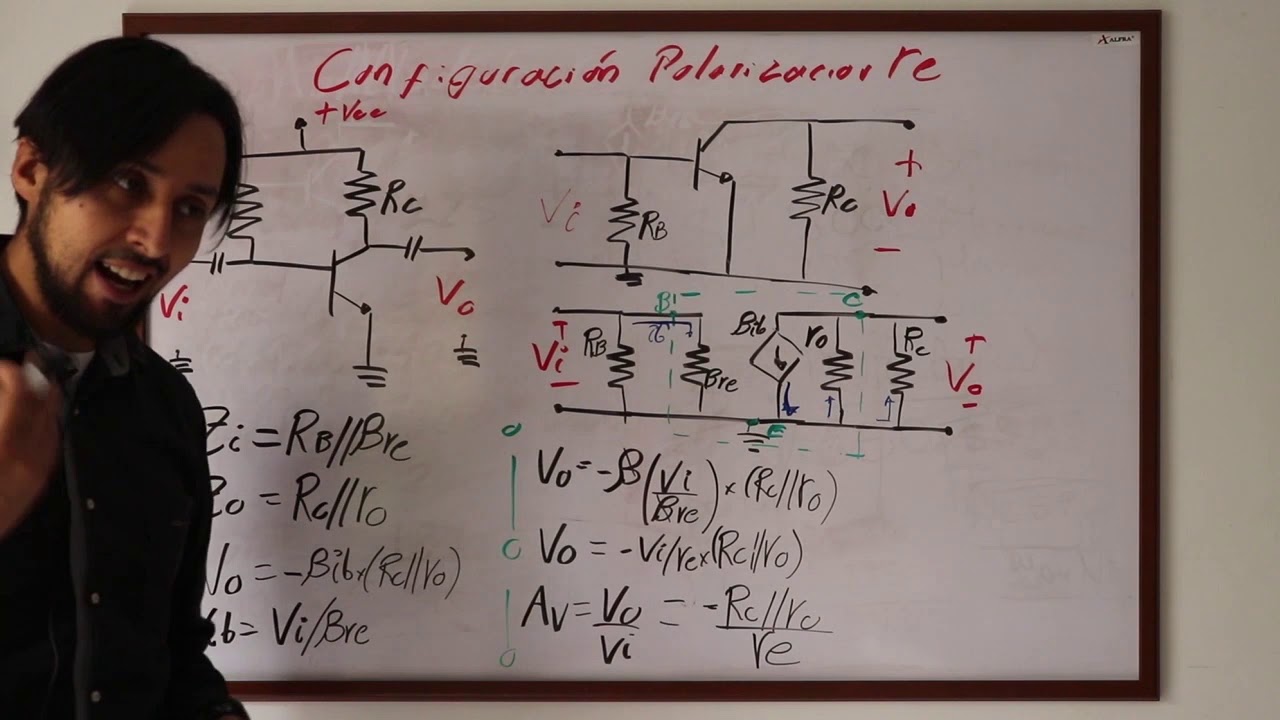 Configuración Polarización re
ALFRA
+Vcc
Rc
Vi
Vo
Vi
RB
Rc
+
Vo
-
B
C
+
Vi
-
RB
ib
Bre
Bib
ro
Rc
+
Vo
-
E
Zi = RB//Bre
Zo = Rc//ro
Vo = -Bib×(Rc//ro)
ib = Vi/Bre
Vo = -B(Vi/Bre)×(Rc//ro)
Vo = -Vi/re×(Rc//ro)
Av = Vo/Vi = -Rc//ro/re